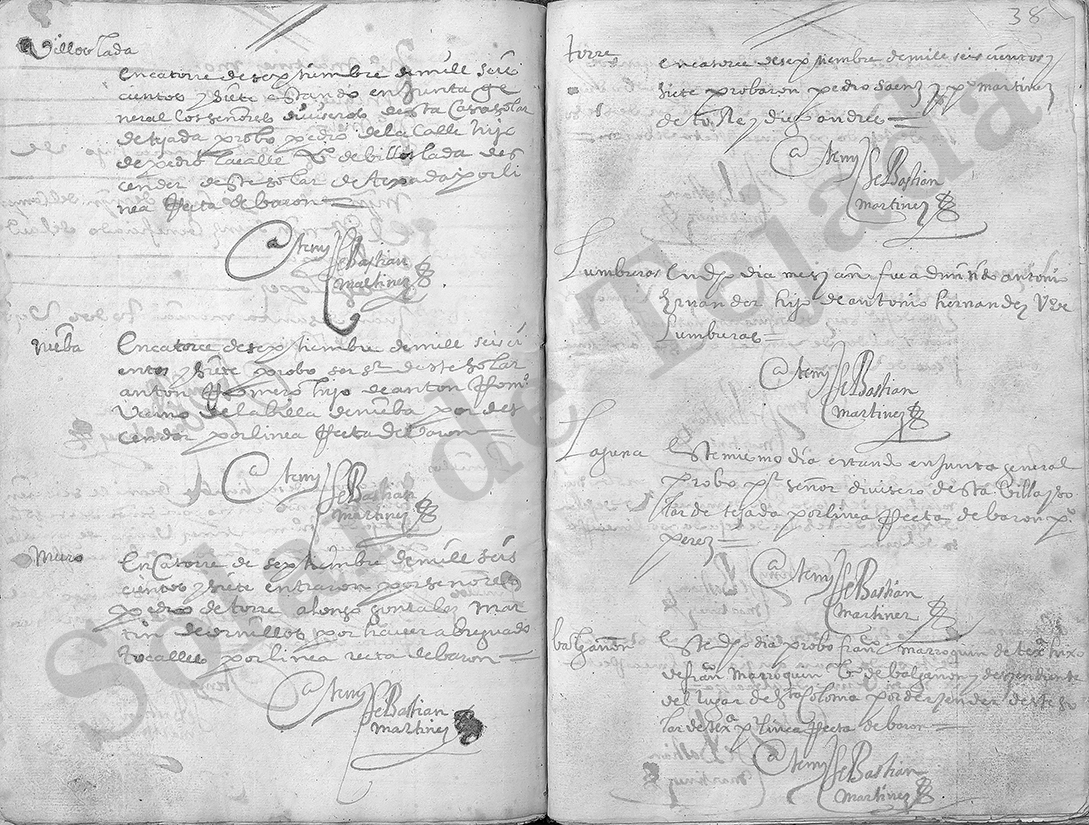 Villoslada
En catorce de septiembre de mill seis
cientos y siete estando en junta ge
neral los señores diviseros desta Casa solar
de tejada probo pedro de la Calle hijo
de pedro lacalle vº de billoslada des
cender deste solar de texada por li
nea Recta de baron
Ante my
Sebastian
Martinez
nieba
En catorce de septiembre de mill seis ci
entos y siete probo ser sr. deste solar
anton Romero hijo de anton Romº
Vecino de la billa de nieba por des
cender por linea Recta de Varon
Ante my
Sebastian
Martinez
Muro
En Catorce de septiembre de mill seis
cientos y siete entraron por señores
pedro de torre alonso gonzalez Mar
tin de por haver aberiguado
tocalles por linea recta de baron
Ante my
Sebastian
Martinez
38
torre
en catorce de septiembre de mill seis cientos y
siete probaron pedro Saenz y pº martinez
de toRe y diego andres
Ante my
Sebastian
Martinez
Lumbreras
En dho dia mes y año fue admitido antonio
hernandez hijo de antonio hernandez vº de
Lumbreras
Ante my
Sebastian
Martinez
Laguna
Este mismo dia estando en junta general
probo pr señor divisero desta Villa y so
lar de tejada por linea Recta de baron pº
perez
Ante my
Sebastian
Martinez
balgañon
Este dho dia probo franco marroquin de hixo
de fran marroquin vº de balgañon y descendiente
del lugar de sta coloma por descender deste so
lar de texa pr linea Recta de baron
Ante my
Sebastian
Martinez
Solar de Tejada